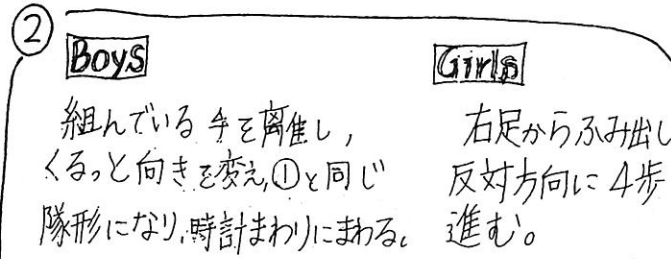 ②
Boys
組んでいる手を離し,
くるっと向きを変え,①と同じ
隊形になり,時計まわりにまわる。
Girls
右足からふみ出し
反対方向に4歩
進む。